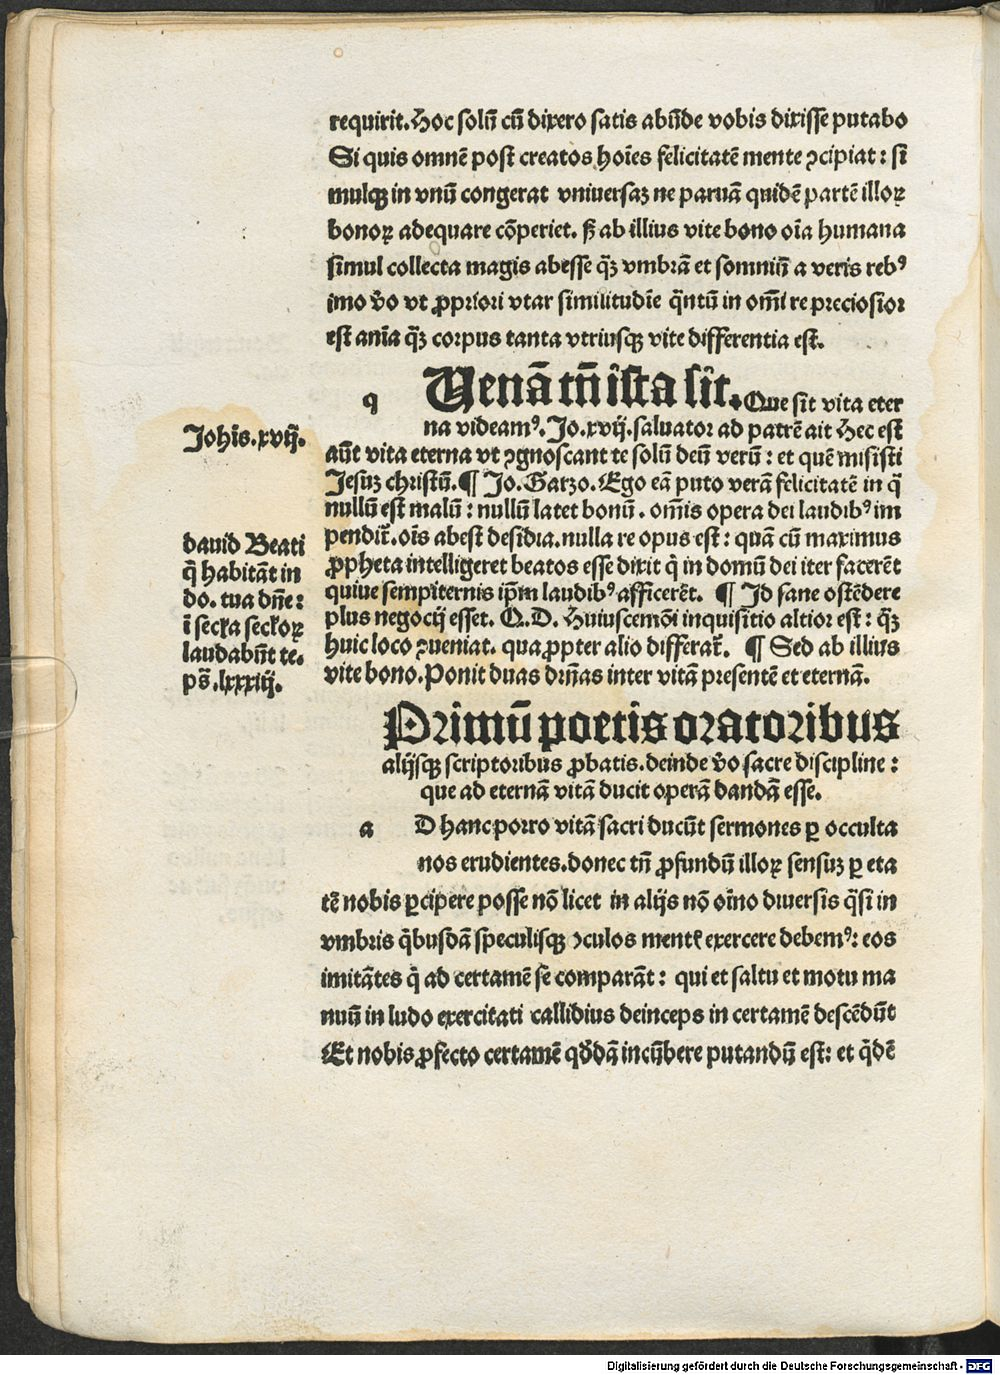 requirit. Hoc solū cū dixero satis abūde vobis dixisse putabo
Si quis omnē post creatos hoīes felicitatē mente ꝯcipiat: si
mulqꝫ in vnū congerat vniuersaꝫ ne paruā quidē partē illoꝝ
bonoꝝ adequare cōperiet. ß ab illius vite bono oīa humana
simul collecta magis abesse qꝫ̄ vmbrā et somniū a veris rebꝰ
imo v̄o vt ꝓpriori vtar similitudīe q̄ntū in om̄i re preciosior
est anīa qꝫ̄ corpus tanta vtriusqꝫ vite differentia est.
q Uenā tn̄ ista sit. Que sit vita eter
na videamꝰ. Jo. xvij. saluator ad patrē ait Hec est
Johīs. xvij.
aūt vita eterna vt ꝯgnoscant te solū deū verū: et quē misisti
Jesuꝫ christū. ¶ Jo. Garzo. Ego eā puto verā felicitatē in q̄
nullū est malū: nullū latet bonū. om̄is opera dei laudibꝰ im
pendit̄. oīs abest desidia. nulla re opus est: quā cū maximus
ꝓpheta intelligeret beatos esse dixit q̄ in domū dei iter facerēt
quiue sempiternis ip̄m laudibꝰ afficerēt. ¶ Jd sane ostēdere
plus negocij esset. Q. D. Huiuscemōi inquisitio altior est: qꝫ̄
huic loco ꝯueniat. qua ꝓpter alio differat̄. ¶ Sed ab illius
vite bono. Ponit duas dr̄ntias inter vitā presentē et eternā.
dauid Beati
q̄ habitāt in
do. tua dn̄e:
ī secl̄a secl̄oꝝ
laudabūt te.
ps̄. lxxxiij.
Primū poetis oratoribus
alijsqꝫ scriptoribus ꝓbatis. deinde v̄o sacre discipline:
que ad eternā vitā ducit operā dandā esse.
a D hanc porro vitā sacri ducūt sermones ꝑ occulta
nos erudientes. donec tn̄ ꝓfundū illoꝝ sensuꝫ ꝑ eta
tē nobis ꝑcipere posse nō licet in alijs nō oīno diuersis q̄si in
vmbris q̄busdā speculisqꝫ oculos mentꝭ exercere debemꝰ: eos
imitātes q̄ ad certamē se comparāt: qui et saltu et motu ma
nuū in ludo exercitati callidius deinceps in certamē descēdūt
Et nobis ꝓfecto certamē qd̄dā incūbere putandū est: et q̄dē
Digitalisierung gefördert durch die Deutsche Forschungsgemeinschaft - DFG